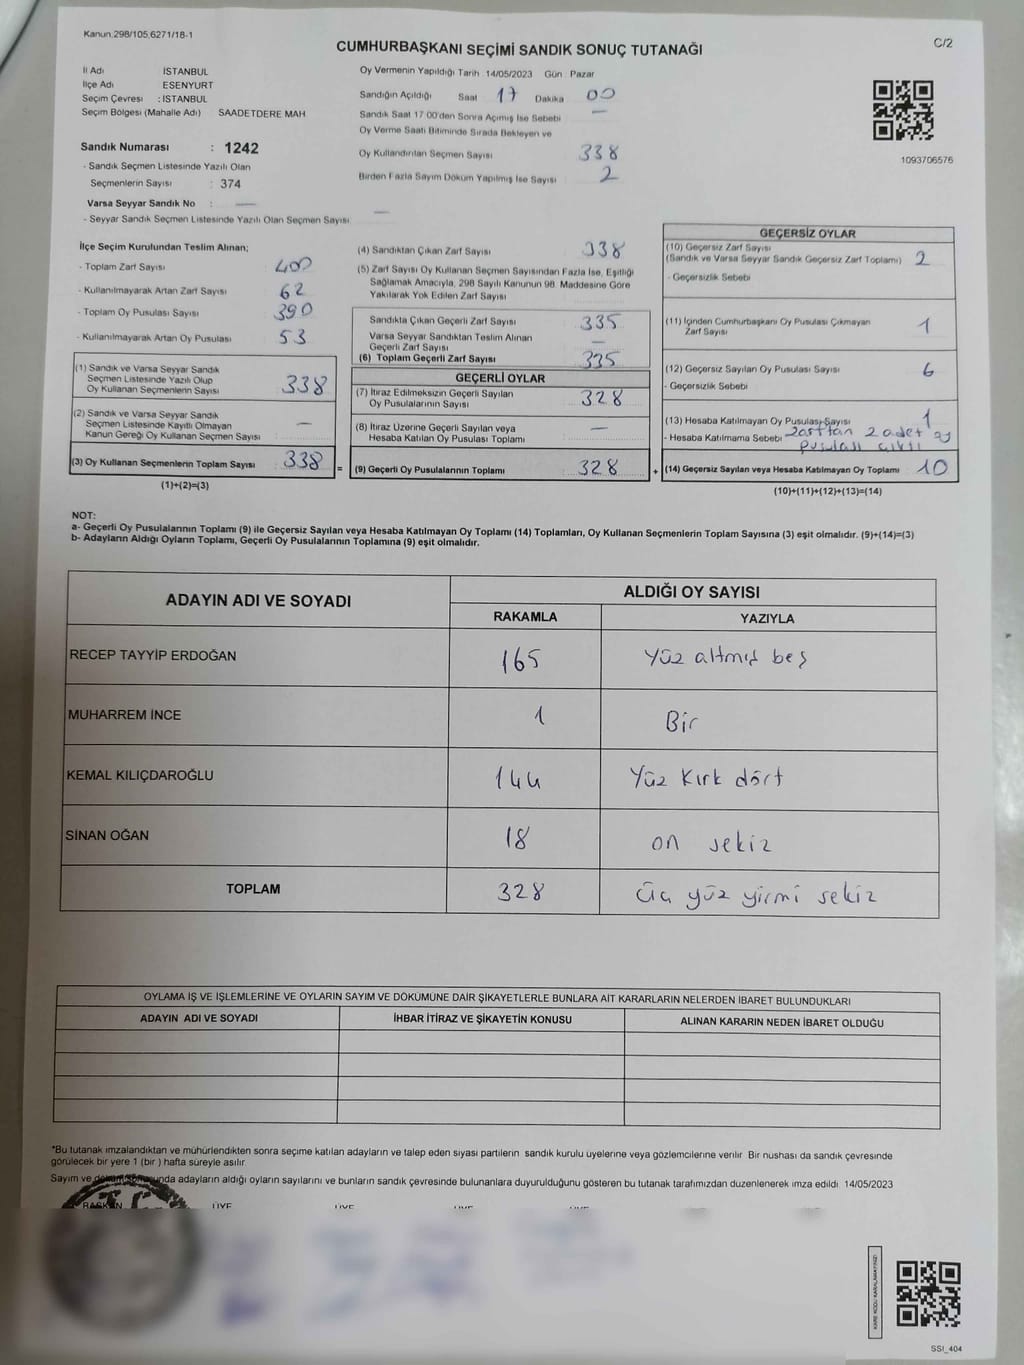 Kanun.298/105,6271/18-1
C/2
CUMHURBAŞKANI SEÇİMİ SANDIK SONUÇ TUTANAĞI
İl Adı İSTANBUL
İlçe Adı ESENYURT
Seçim Çevresi : İSTANBUL
Seçim Bölgesi (Mahalle Adı) SAADETDERE MAH
Sandık Numarası : 1242
- Sandık Seçmen Listesinde Yazılı Olan
Seçmenlerin Sayısı : 374
Varsa Seyyar Sandık No : —
- Seyyar Sandık Seçmen Listesinde Yazılı Olan Seçmen Sayısı —
Oy Vermenin Yapıldığı Tarih 14/05/2023 Gün Pazar
Sandığın Açıldığı Saat 17 Dakika 00
Sandık Saat 17 00'den Sonra Açılmış İse Sebebi —
Oy Verme Saati Bitiminde Sırada Bekleyen ve
Oy Kullandırılan Seçmen Sayısı 338
Birden Fazla Sayım Döküm Yapılmış İse Sayısı 2
1093706576
İlçe Seçim Kurulundan Teslim Alınan;
- Toplam Zarf Sayısı 400
- Kullanılmayarak Artan Zarf Sayısı 62
- Toplam Oy Pusulası Sayısı 390
- Kullanılmayarak Artan Oy Pusulası 53
(1) Sandık ve Varsa Seyyar Sandık
Seçmen Listesinde Yazılı Olup
Oy Kullanan Seçmenlerin Sayısı 338
(2) Sandık ve Varsa Seyyar Sandık
Seçmen Listesinde Kayıtlı Olmayan
Kanun Gereği Oy Kullanan Seçmen Sayısı —
(3) Oy Kullanan Seçmenlerin Toplam Sayısı 338 =
(1)+(2)=(3)
(4) Sandıktan Çıkan Zarf Sayısı 338
(5) Zarf Sayısı Oy Kullanan Seçmen Sayısından Fazla İse, Eşitliği
Sağlamak Amacıyla, 298 Sayılı Kanunun 98. Maddesine Göre
Yakılarak Yok Edilen Zarf Sayısı
Sandıkta Çıkan Geçerli Zarf Sayısı 335
Varsa Seyyar Sandıktan Teslim Alınan
Geçerli Zarf Sayısı —
(6) Toplam Geçerli Zarf Sayısı 335
GEÇERLİ OYLAR
(7) İtiraz Edilmeksizin Geçerli Sayılan
Oy Pusulalarının Sayısı 328
(8) İtiraz Üzerine Geçerli Sayılan veya
Hesaba Katılan Oy Pusulası Toplamı —
(9) Geçerli Oy Pusulalarının Toplamı 328 +
GEÇERSİZ OYLAR
(10) Geçersiz Zarf Sayısı
(Sandık ve Varsa Seyyar Sandık Geçersiz Zarf Toplamı) 2
- Geçersizlik Sebebi
(11) İçinden Cumhurbaşkanı Oy Pusulası Çıkmayan
Zarf Sayısı 1
(12) Geçersiz Sayılan Oy Pusulası Sayısı 6
- Geçersizlik Sebebi
(13) Hesaba Katılmayan Oy Pusulası Sayısı 1
- Hesaba Katılmama Sebebi zarftan 2 adet oy
pusulası çıktı
(14) Geçersiz Sayılan veya Hesaba Katılmayan Oy Toplamı 10
(10)+(11)+(12)+(13)=(14)
NOT:
a- Geçerli Oy Pusulalarının Toplamı (9) ile Geçersiz Sayılan veya Hesaba Katılmayan Oy Toplamı (14) Toplamları, Oy Kullanan Seçmenlerin Toplam Sayısına (3) eşit olmalıdır. (9)+(14)=(3)
b- Adayların Aldığı Oyların Toplamı, Geçerli Oy Pusulalarının Toplamına (9) eşit olmalıdır.
ADAYIN ADI VE SOYADI
ALDIĞI OY SAYISI
RAKAMLA YAZIYLA
RECEP TAYYİP ERDOĞAN 165 Yüz altmış beş
MUHARREM İNCE 1 Bir
KEMAL KILIÇDAROĞLU 144 Yüz Kırk dört
SİNAN OĞAN 18 on sekiz
TOPLAM 328 üç yüz yirmi sekiz
OYLAMA İŞ VE İŞLEMLERİNE VE OYLARIN SAYIM VE DÖKÜMÜNE DAİR ŞİKAYETLERLE BUNLARA AİT KARARLARIN NELERDEN İBARET BULUNDUKLARI
ADAYIN ADI VE SOYADI İHBAR İTİRAZ VE ŞİKAYETİN KONUSU ALINAN KARARIN NEDEN İBARET OLDUĞU
*Bu tutanak imzalandıktan ve mühürlendikten sonra seçime katılan adayların ve talep eden siyasi partilerin sandık kurulu üyelerine veya gözlemcilerine verilir Bir nüshası da sandık çevresinde
görülecek bir yere 1 (bir ) hafta süreyle asılır
Sayım ve dökümü sonunda adayların aldığı oyların sayılarını ve bunların sandık çevresinde bulunanlara duyurulduğunu gösteren bu tutanak tarafımızdan düzenlenerek imza edildi 14/05/2023
BAŞKAN ÜYE ÜYE ÜYE ÜYE
KARE KODU KARALAMAYINIZ!
SSI_404